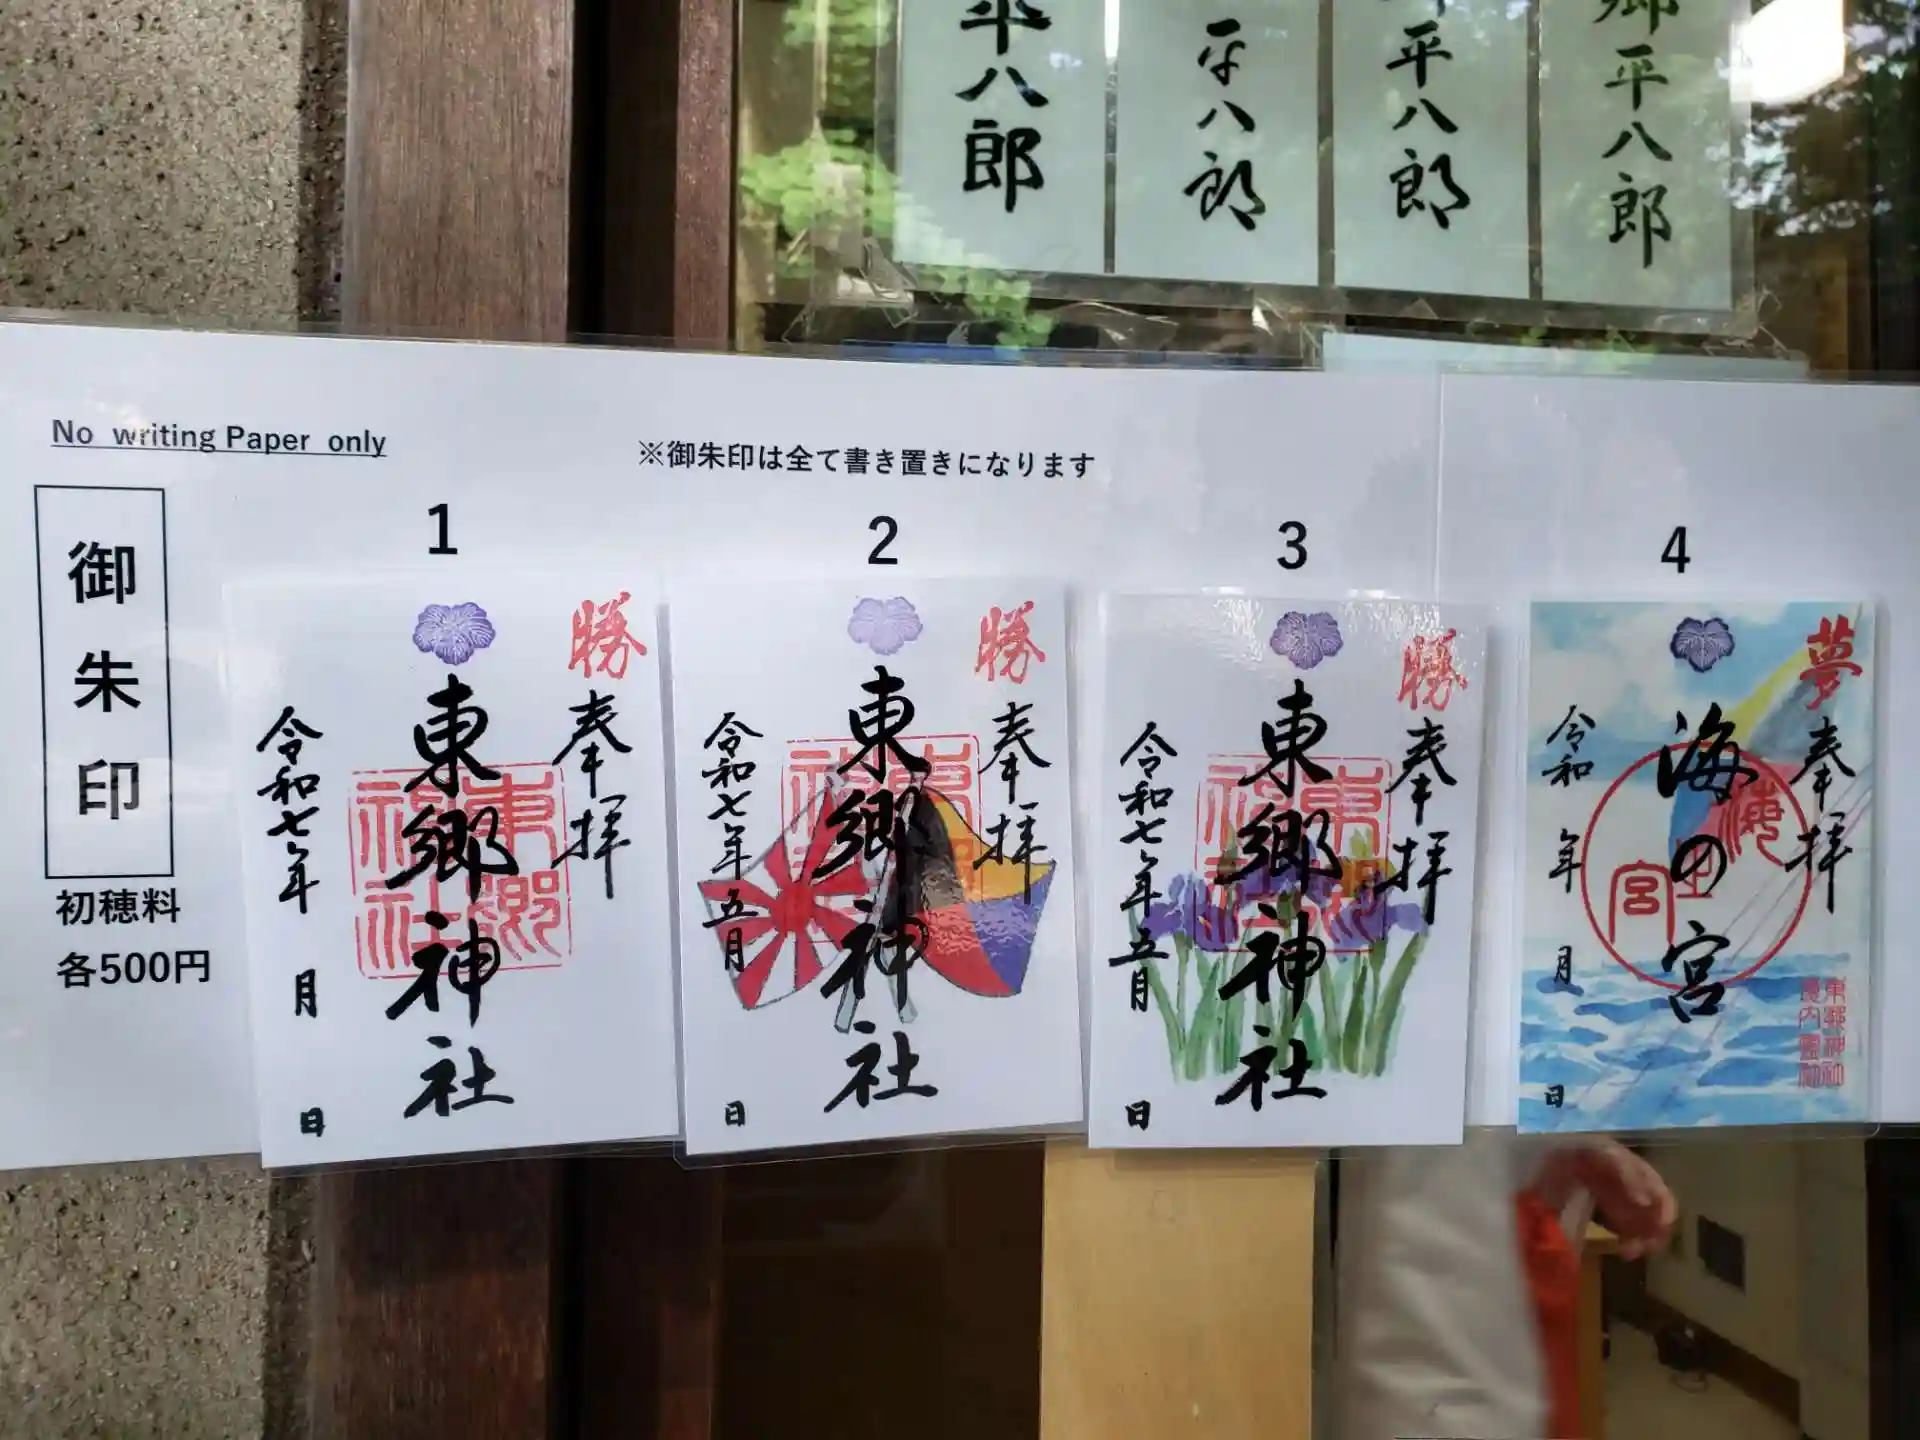 平八郎
平八郎
平八郎
郷平八郎
No writing Paper only
※御朱印は全て書き置きになります
御朱印
初穂料
各500円
1
勝
奉拝
東郷神社
東郷神社
令和七年 月 日
2
勝
奉拝
東郷神社
令和七年五月 日
3
勝
奉拝
東郷神社
令和七年五月 日
4
夢
奉拝
海の宮
令和 年 月 日
東郷神社